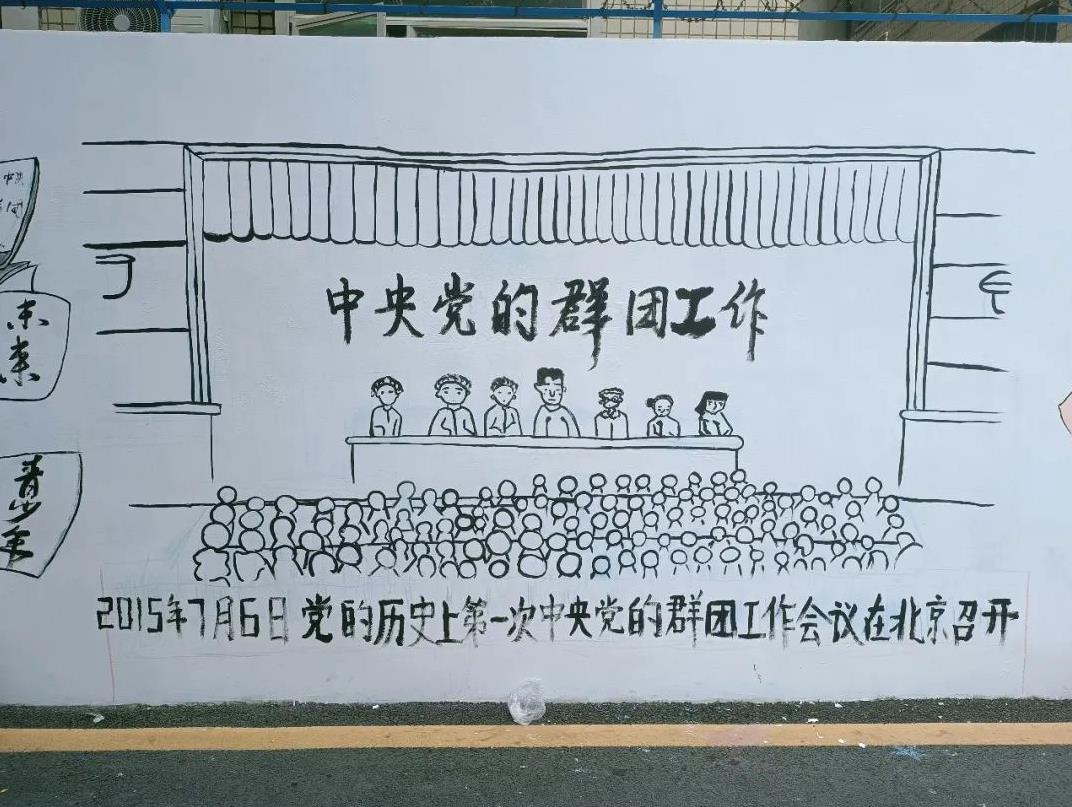 中央
未来
青少年
中央党的群团工作
2015年7月6日党的历史上第一次中央党的群团工作会议在北京召开